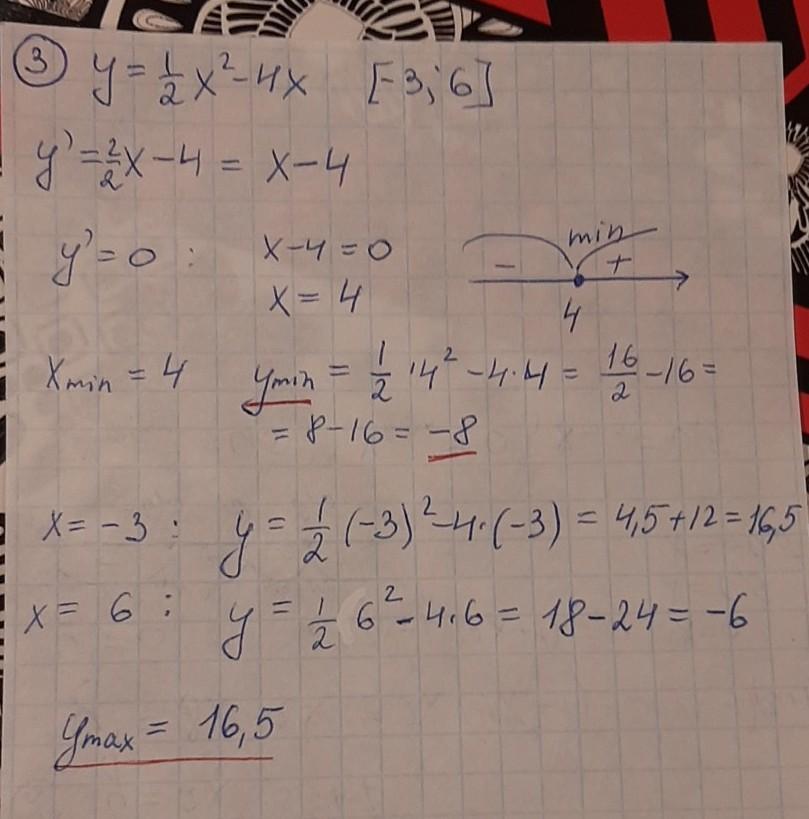 ③ y = 1/2 x² - 4x [-3; 6]
y' = 2/2 x - 4 = x - 4
y' = 0 : x - 4 = 0
min
- +
x = 4
4
xmin = 4 ymin = 1/2 · 4² - 4 · 4 = 16/2 - 16 =
= 8 - 16 = -8
x = -3 : y = 1/2 (-3)² - 4 · (-3) = 4,5 + 12 = 16,5
x = 6 : y = 1/2 6² - 4 · 6 = 18 - 24 = -6
ymax = 16,5